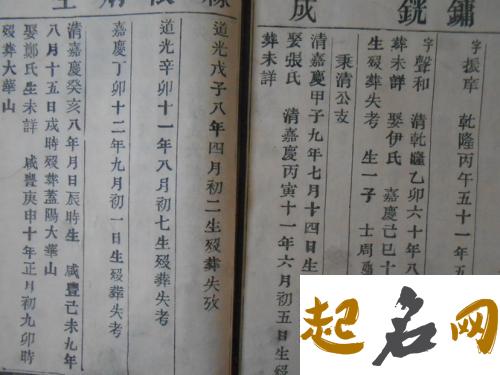 鏞
銧
成
字 振庠 乾隆丙午五十一年五
字 聲和 清乾隆乙卯六十年八
葬未詳 娶伊氏 嘉慶己巳十
生歿葬失考 生一子 士周
秉清公支
清嘉慶甲子九年七月十四日生
娶張氏 清嘉慶丙寅十一年六月初五日生
葬未詳
道光戊子八年四月初二生歿葬失攷
道光辛卯十一年八月初七生歿葬失考
嘉慶丁卯十二年九月初一日生歿葬失考
清嘉慶癸亥八年月日辰時生 咸豐己未九年
八月十五日戌時歿葬蓋陽大華山
娶鄭氏生未詳 咸豐庚申十年正月初九卯時
歿葬大華山
起名网